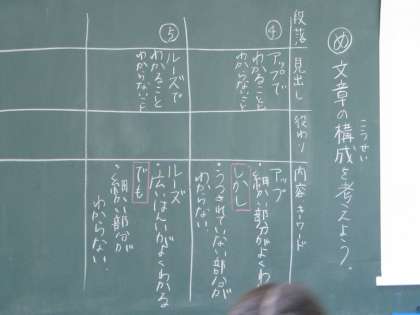 め 文章の構成を考えよう。
こうせい
段落
見出し
役わり
内容 キーワード
④
アップで
わかることと
わからないこと
アップ
・細かい部分がよくわ
しかし
・うつされていない部分が
わからない。
⑤
ルーズで
わかることと
わからないこと
ルーズ
・広いはんいがよくわかる
でも
・細かい部分が
わからない。